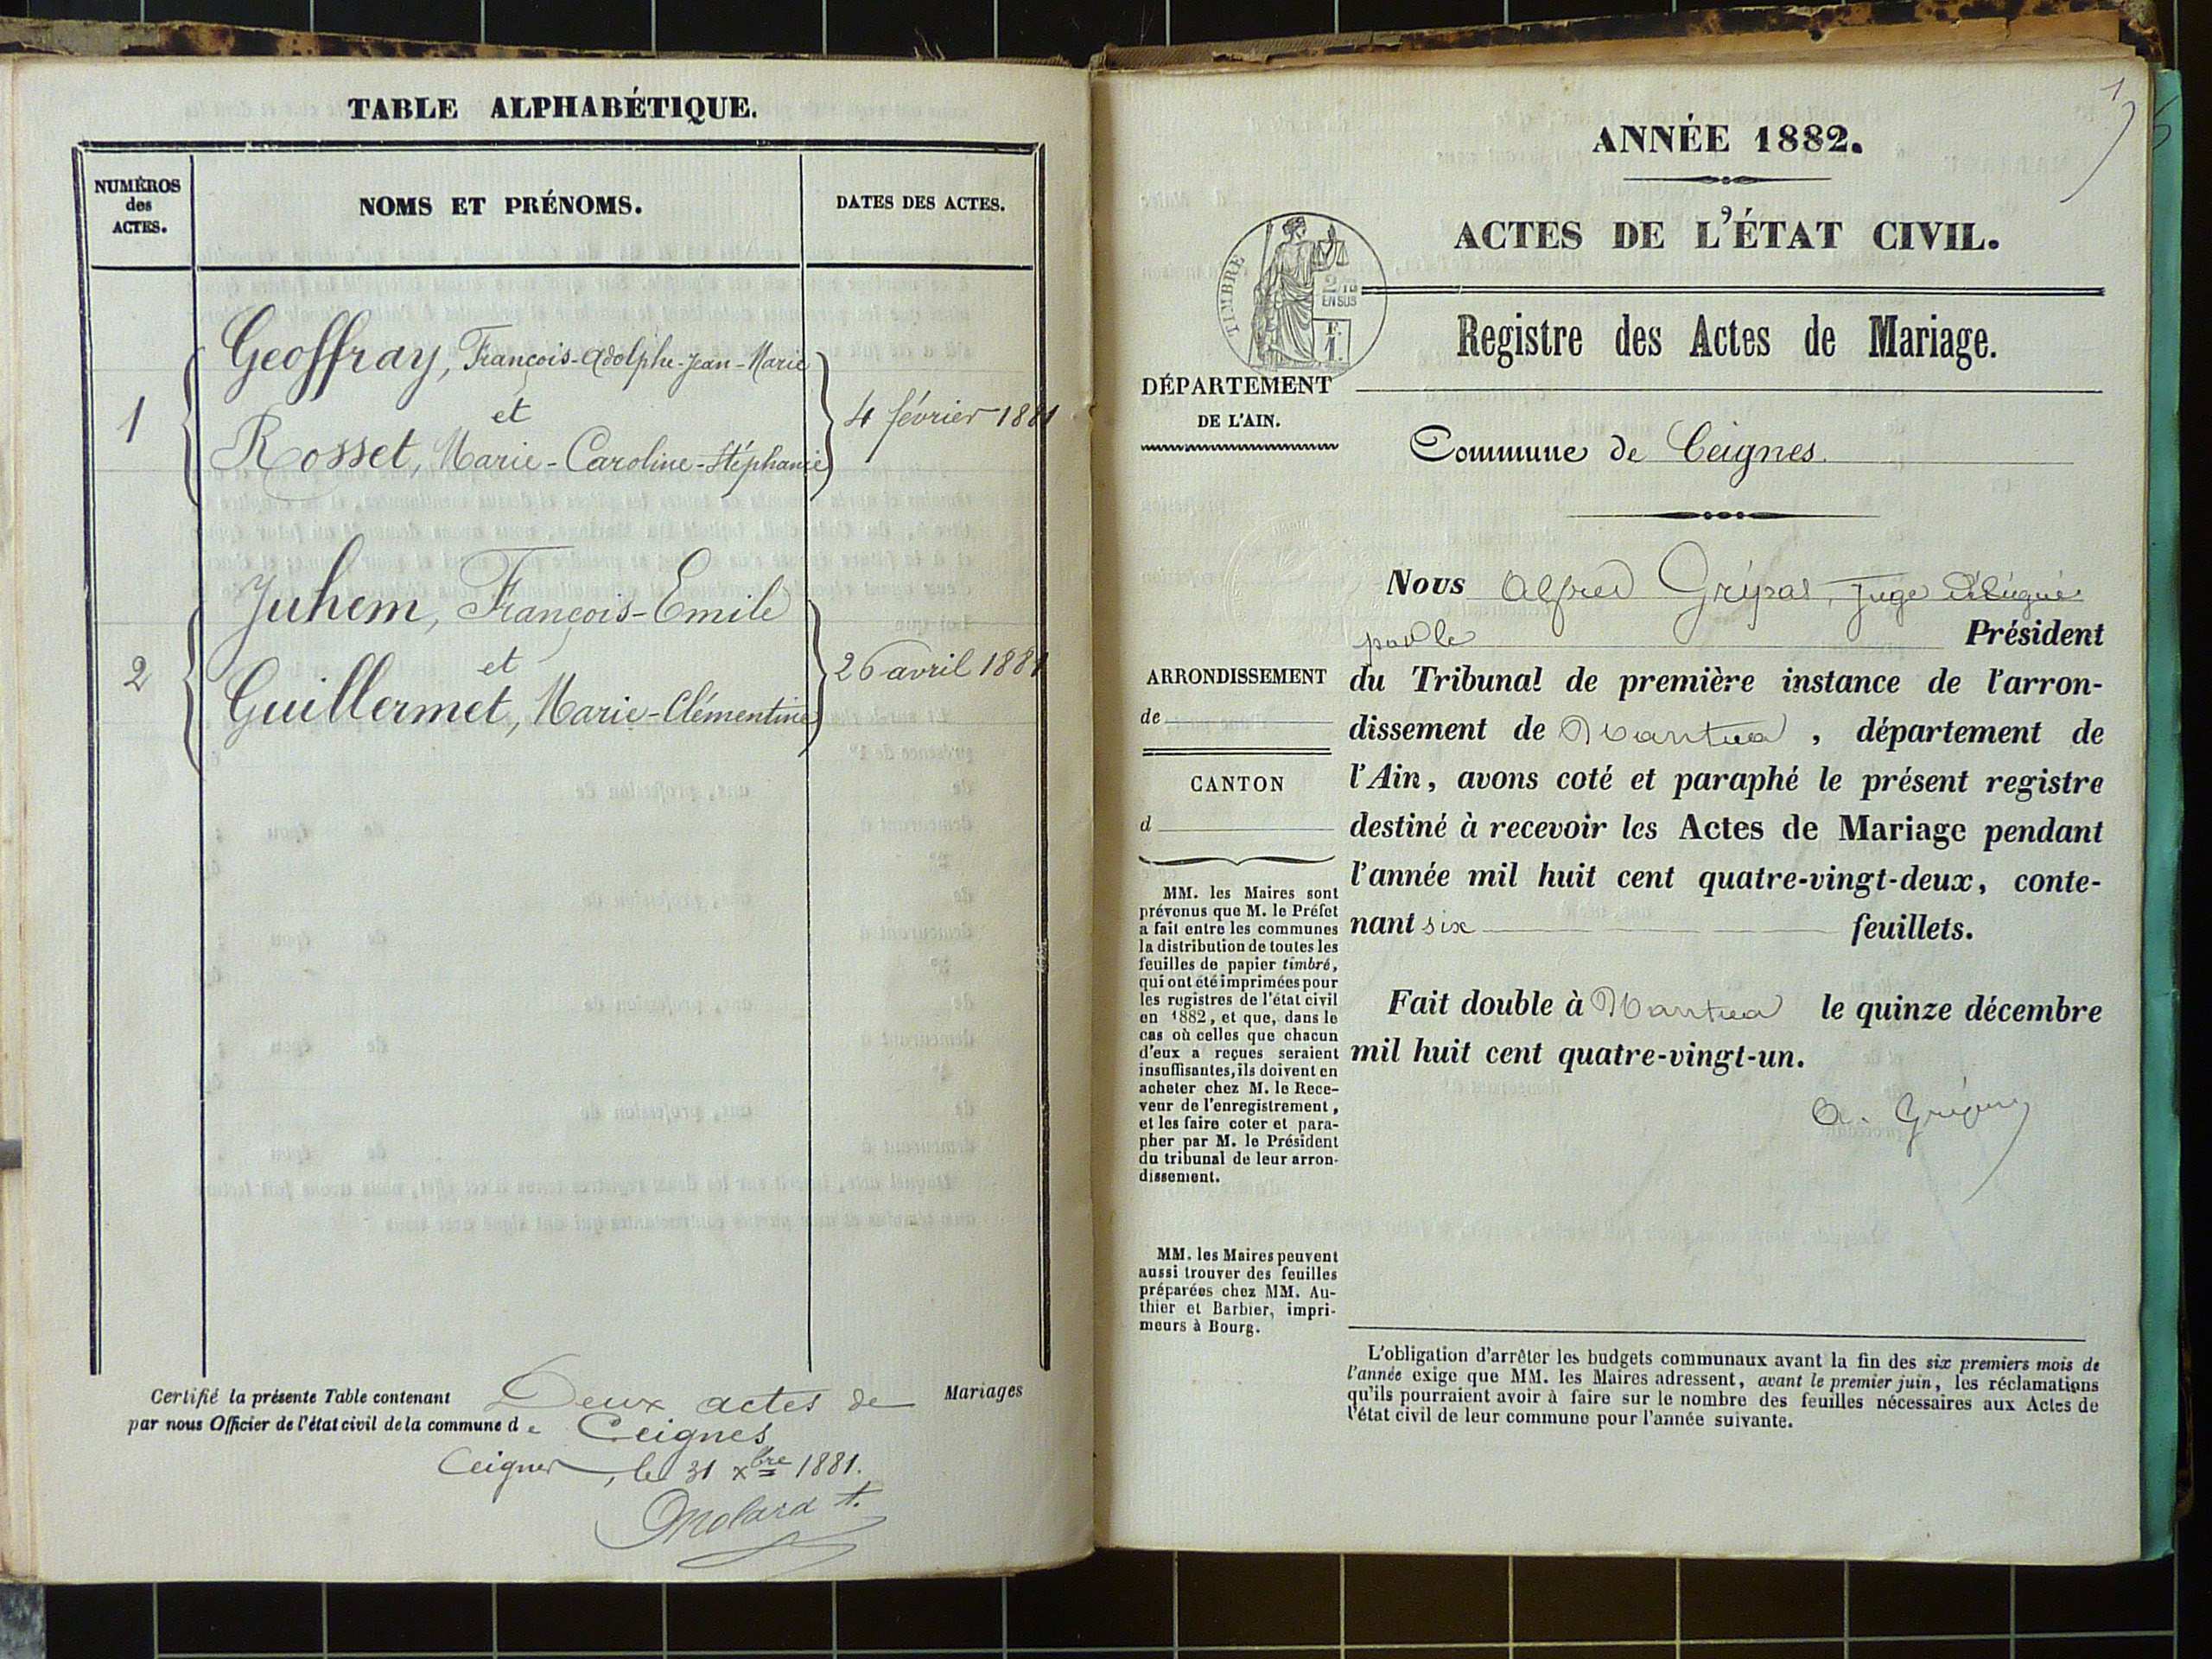 TABLE ALPHABÉTIQUE.
NUMÉROS
des
ACTES.
NOMS ET PRÉNOMS.
DATES DES ACTES.
1
Geoffray, François-Adolphe-Jean-Marie
et
Rosset, Marie-Caroline-Stéphanie
4 février 1881
2
Juhem, François-Emile
et
Guillermet, Marie-Clémentine
26 avril 1881
Certifié la présente Table contenant Deux actes de Mariages
par nous Officier de l'état civil de la commune de Ceignes
Ceignes, le 31 xbre 1881.
Molard
1
ANNÉE 1882.
ACTES DE L'ÉTAT CIVIL.
TIMBRE
2/10
EN SUS
Registre des Actes de Mariage.
DÉPARTEMENT
DE L'AIN.
Commune de Ceignes
Nous Alfred Juge Délégué
par le Président
du Tribunal de première instance de l'arron-
dissement de Nantua, département de
l'Ain, avons coté et paraphé le présent registre
destiné à recevoir les Actes de Mariage pendant
l'année mil huit cent quatre-vingt-deux, conte-
nant six feuillets.
Fait double à Nantua le quinze décembre
mil huit cent quatre-vingt-un.
ARRONDISSEMENT
de
CANTON
d
MM. les Maires sont
prévenus que M. le Préfet
a fait entre les communes
la distribution de toutes les
feuilles de papier timbré,
qui ont été imprimées pour
les registres de l'état civil
en 1882, et que, dans le
cas où celles que chacun
d'eux a reçues seraient
insuffisantes, ils doivent en
acheter chez M. le Rece-
veur de l'enregistrement,
et les faire coter et para-
pher par M. le Président
du tribunal de leur arron-
dissement.
MM. les Maires peuvent
aussi trouver des feuilles
préparées chez MM. Au-
thier et Barbier, impri-
meurs à Bourg.
L'obligation d'arrêter les budgets communaux avant la fin des six premiers mois de
l'année exige que MM. les Maires adressent, avant le premier juin, les réclamations
qu'ils pourraient avoir à faire sur le nombre des feuilles nécessaires aux Actes de
l'état civil de leur commune pour l'année suivante.